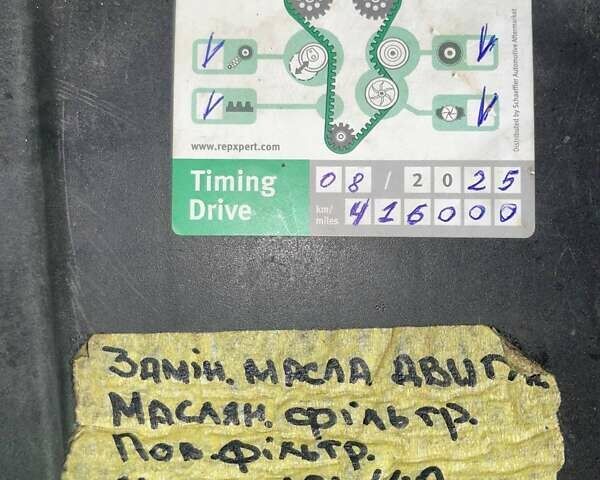 www.repxpert.com
Distributed by Schaeffler Automotive Aftermarket
Timing Drive
08 / 2025
km/miles 416000
Замін. масла двиг
Маслян. фільтр.
Пов. фільтр.